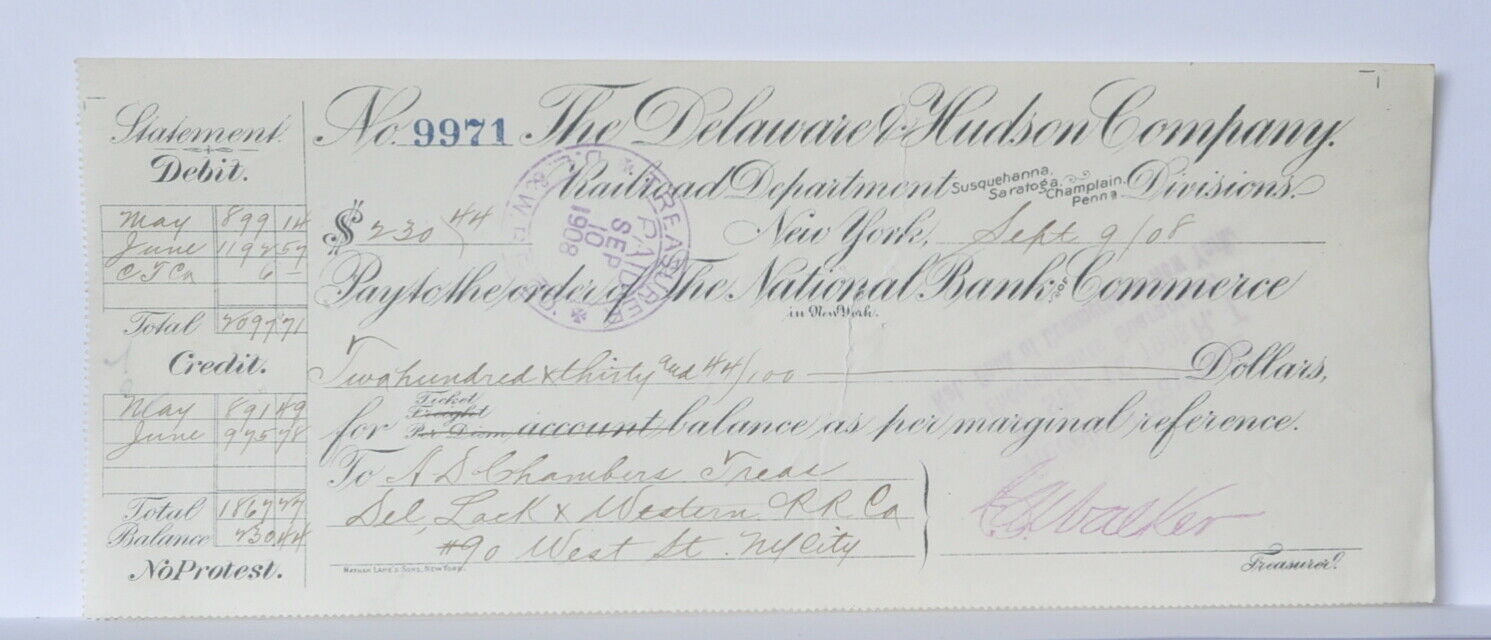 Statement
Debit.
May 899 14
June 1192 57
C T Co 6 —
Total 2097 71
Credit.
May 891 49
June 975 78
Total 1867 27
Balance 230.44
No Protest.
No. 9971 The Delaware & Hudson Company.
Railroad Department Susquehanna, Saratoga, Champlain, Penna. Divisions.
$ 230 44
New York, Sept 9/08
Pay to the order of The National Bank of Commerce
in New York.
Two hundred & thirty and 44/100 Dollars,
for Ticket Freight Per Diem account balance as per marginal reference.
To A D Chambers Treas
Del, Lack & Western RR Co
#90 West St. NY City
Treasurer.
NATHAN LANE'S SONS, NEW YORK.
TREASURER
PAID
SEP
10
1908
Walker